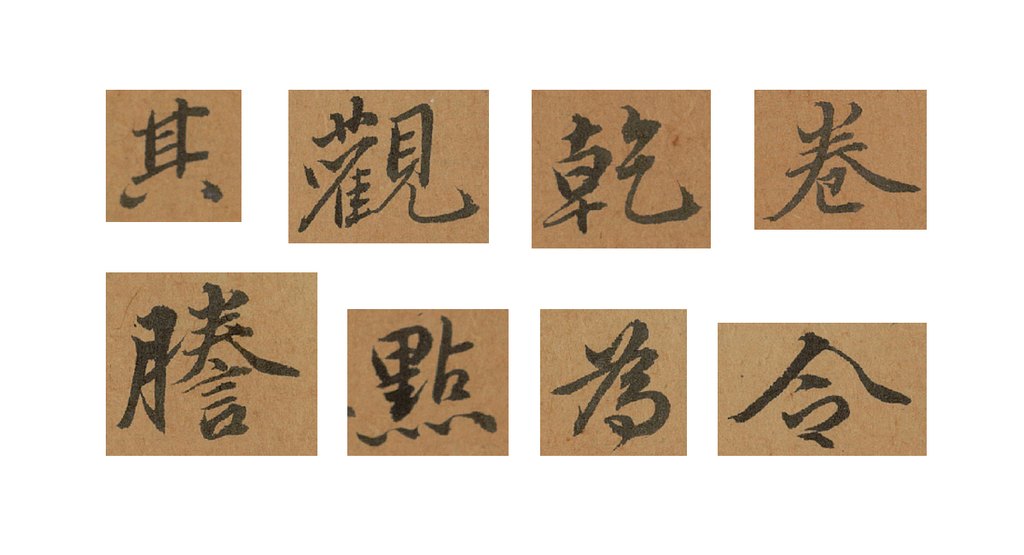 其觀乾卷
謄點為令